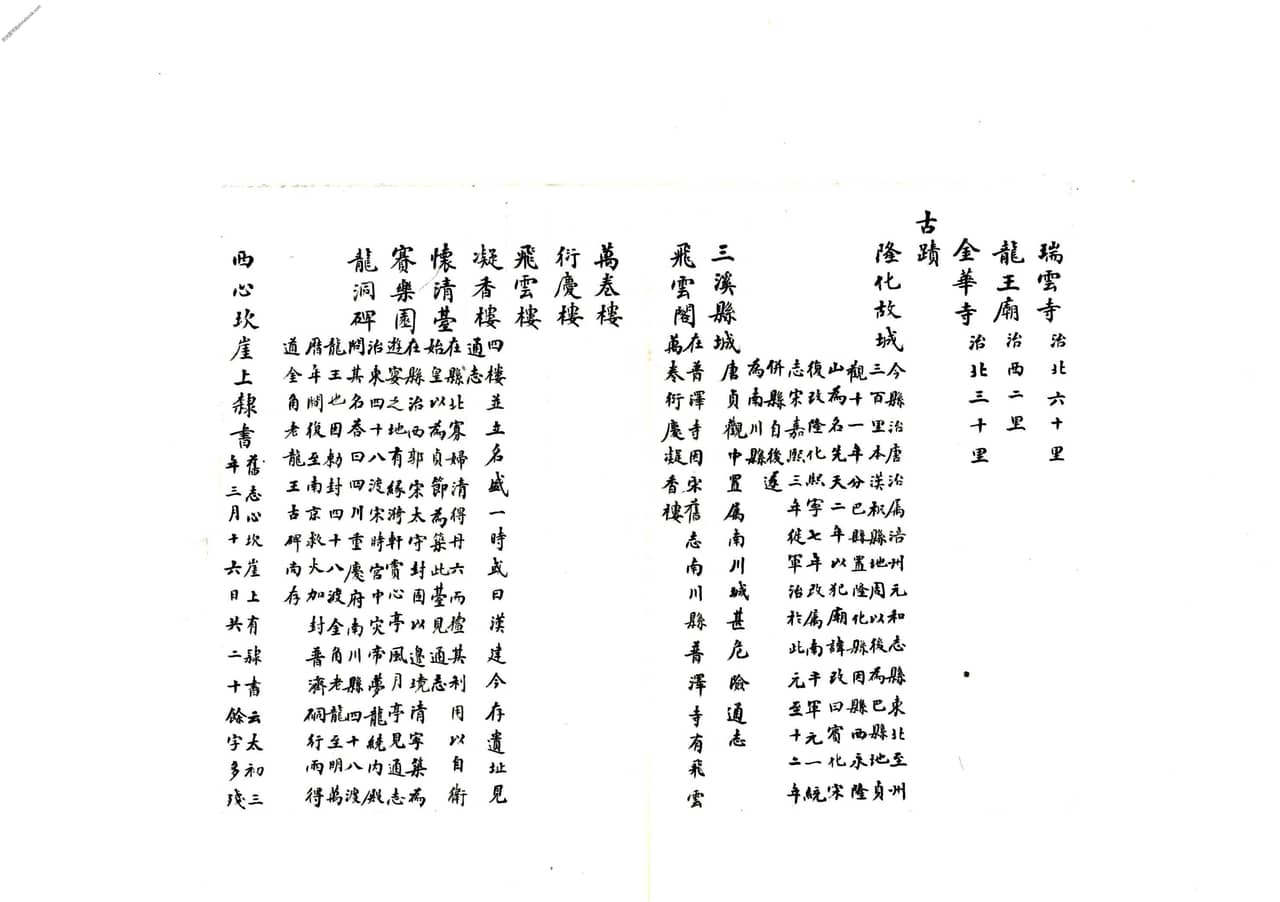 瑞雲寺 治北六十里
龍王廟 治西二里
金華寺 治北三十里
古蹟
隆化故城 今縣治唐治属涪州元和志縣東北至州
三百里本漢枳縣地周以後為巴縣地貞
觀十一年分巴縣置隆化縣因縣西永隆
山為名先天二年以犯廟諱改曰賓化宋
復改隆化熙寧七年改属南平軍元一統
志宋嘉熙三年徙軍治於此元至十二年
併縣自後遂
為南川縣
三溪縣城 唐貞觀中置属南川城甚危險通志
飛雲閣 在普澤寺因宋舊志南川縣普澤寺有飛雲
萬卷衍慶凝香樓
萬卷樓
衍慶樓
飛雲樓
凝香樓 四樓並立名盛一時或曰漢建今存遺址見
通志
懷清臺 在縣北寡婦清得丹穴而擅其利用以自衛
始皇以為貞節為築此臺見通志
賽樂園 在縣治西郭宋太守封因以邊境清寧築為
遊宴之地有緣漪軒賞心亭風月亭見通志
龍洞碑 治東四十八渡宋時宮中灾帝夢龍繞内殿
問其名答曰四川重慶府南川縣四十八渡
龍王也因勅封四十八渡金角老龍至明萬
曆年間復至南京救火加封普濟硐行雨得
道金角老龍王古碑尚存
西心坎崖上隸書 舊志心坎崖上有隸書云太初三
年三月十六日共二十餘字多殘